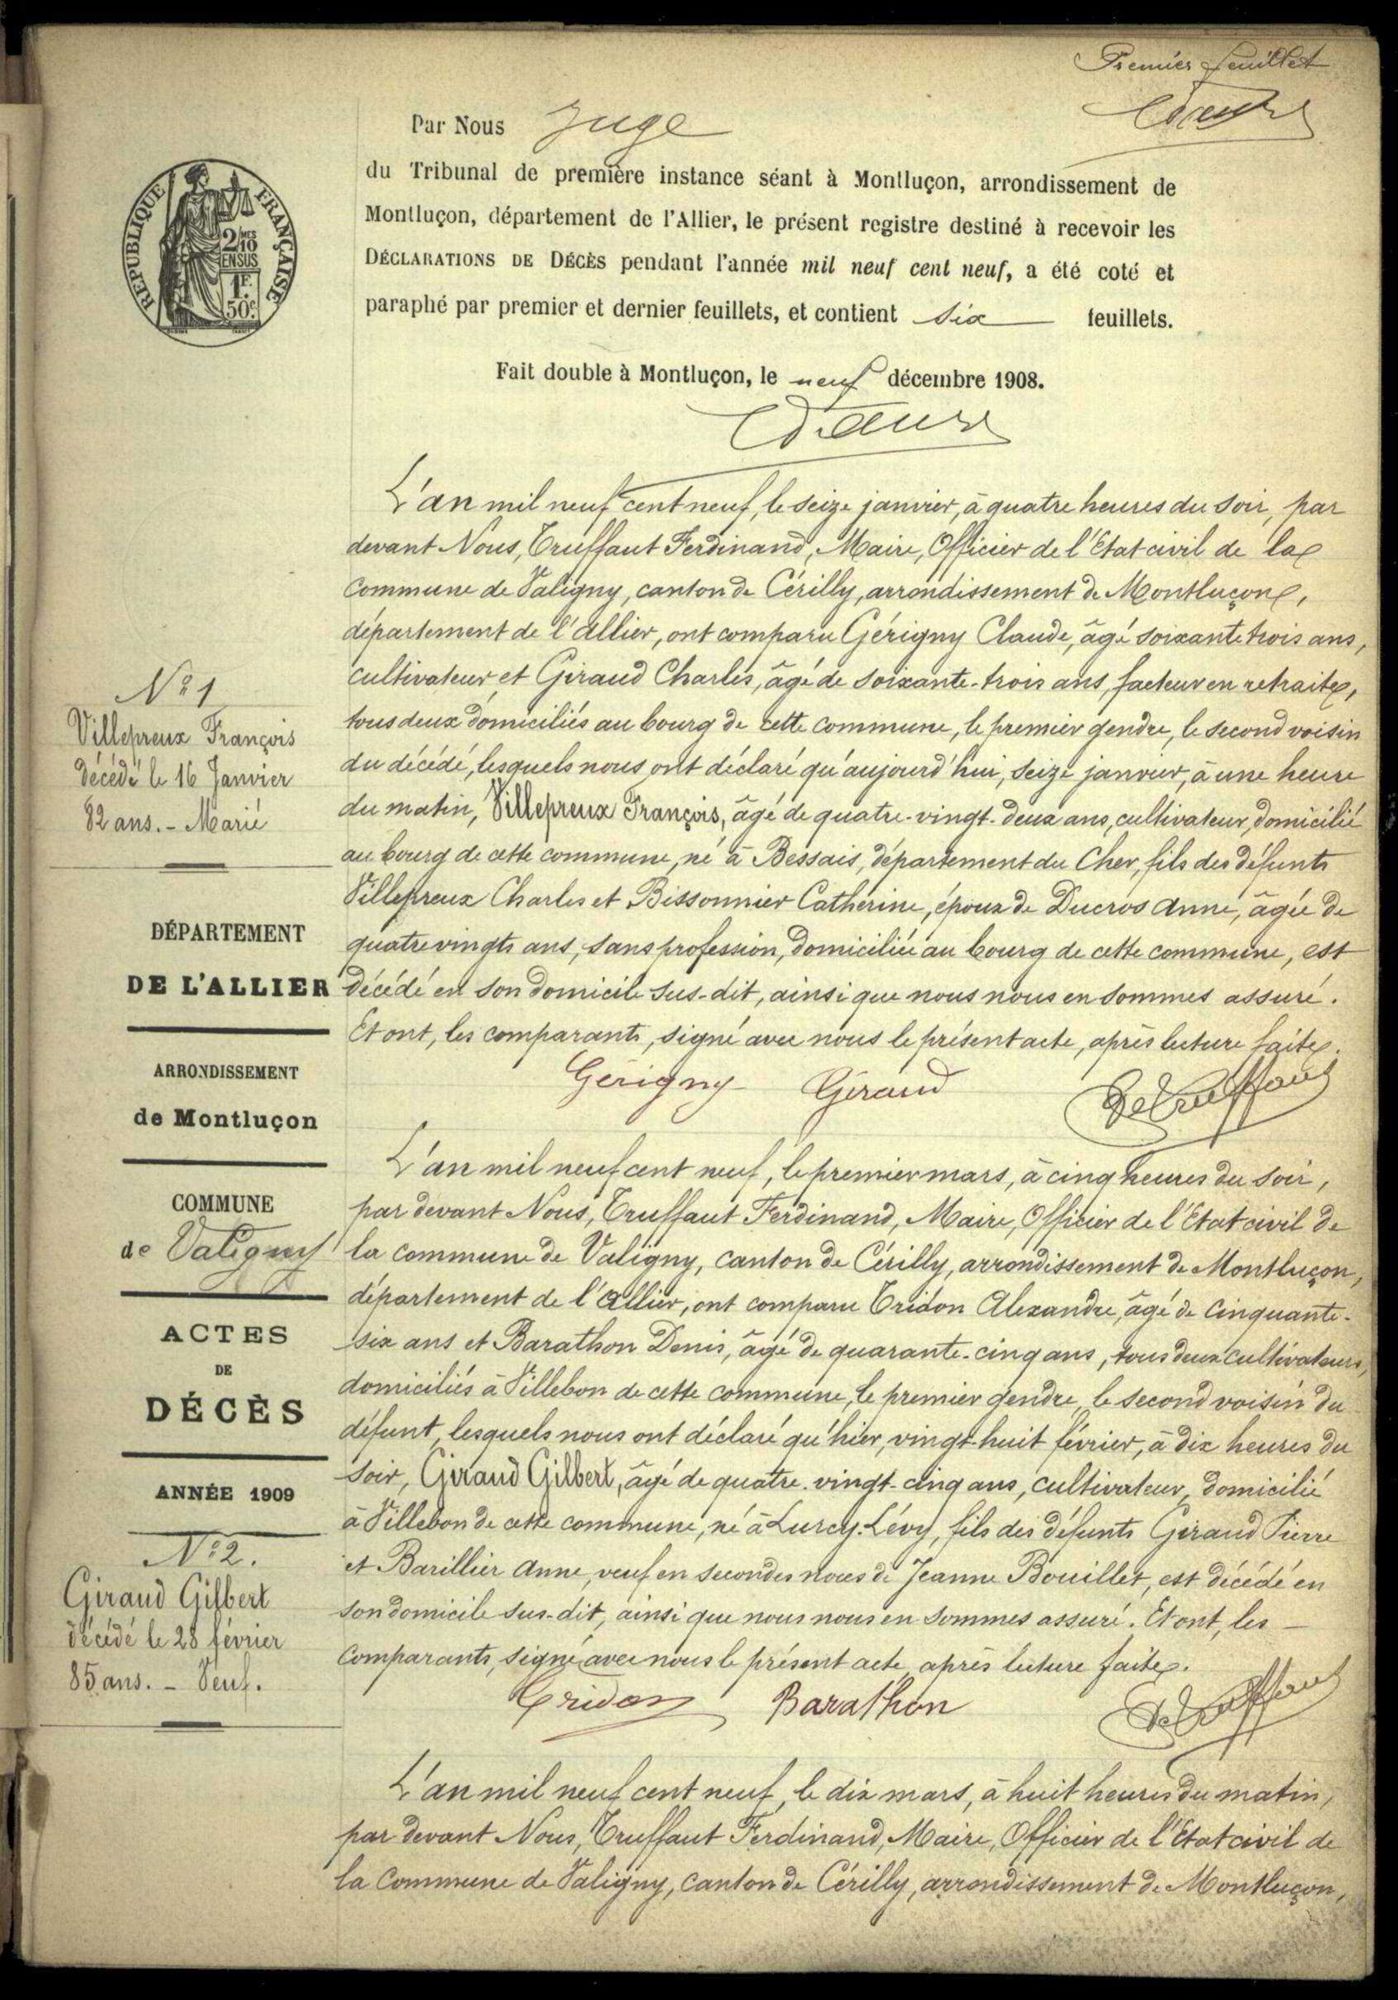 Premier feuillet
Par Nous Juge
du Tribunal de première instance séant à Montluçon, arrondissement de
Montluçon, département de l'Allier, le présent registre destiné à recevoir les
DÉCLARATIONS DE DÉCÈS pendant l'année mil neuf cent neuf, a été coté et
paraphé par premier et dernier feuillets, et contient six feuillets.
Fait double à Montluçon, le neuf décembre 1908.
RÉPUBLIQUE FRANÇAISE
2/10 MES
EN SUS
1F.
50c.
L'an mil neuf cent neuf, le seize janvier, à quatre heures du soir, par
devant Nous, Truffaut Ferdinand, Maire, Officier de l'Etat civil de la
commune de Valigny, canton de Cérilly, arrondissement de Montluçon,
département de l'Allier, ont comparu Gérigny Claude, âgé soixante trois ans,
cultivateur et Giraud Charles, âgé de soixante-trois ans, facteur en retraite,
tous deux domiciliés au bourg de cette commune, le premier gendre, le second voisin
du décédé, lesquels nous ont déclaré qu'aujourd'hui, seize janvier, à une heure
du matin, Villepreux François, âgé de quatre-vingt-deux ans, cultivateur, domicilié
au bourg de cette commune, né à Bessais, département du Cher, fils des défunts
Villepreux Charles et Bissonnier Catherine, époux de Ducros Anne, âgée de
quatre vingts ans, sans profession, domiciliée au bourg de cette commune, est
décédé en son domicile sus-dit, ainsi que nous nous en sommes assuré.
Et ont, les comparants, signé avec nous le présent acte, après lecture faite.
Gérigny Giraud De Truffaut
N° 1
Villepreux François
décédé le 16 Janvier
82 ans. - Marié
DÉPARTEMENT
DE L'ALLIER
ARRONDISSEMENT
de Montluçon
COMMUNE
de Valigny
ACTES
DE
DÉCÈS
ANNÉE 1909
L'an mil neuf cent neuf, le premier mars, à cinq heures du soir,
par devant Nous, Truffaut Ferdinand, Maire, Officier de l'Etat civil de
la commune de Valigny, canton de Cérilly, arrondissement de Montluçon,
département de l'Allier, ont comparu Tridon Alexandre, âgé de cinquante-
six ans et Barathon Denis, âgé de quarante-cinq ans, tous deux cultivateurs,
domiciliés à Villebon de cette commune, le premier gendre, le second voisin du
défunt, lesquels nous ont déclaré qu'hier, vingt-huit février, à dix heures du
soir, Giraud Gilbert, âgé de quatre-vingt-cinq ans, cultivateur, domicilié
à Villebon de cette commune, né à Lurcy-Lévy, fils des défunts Giraud Pierre
et Barillier Anne, veuf en secondes noces de Jeanne Bouillet, est décédé en
son domicile sus-dit, ainsi que nous nous en sommes assuré. Et ont, les -
comparants, signé avec nous le présent acte, après lecture faite.
Tridon Barathon De Truffaut
N° 2.
Giraud Gilbert
décédé le 28 février
85 ans. - Veuf.
L'an mil neuf cent neuf, le dix mars, à huit heures du matin,
par devant Nous, Truffaut Ferdinand, Maire, Officier de l'Etat civil de
la commune de Valigny, canton de Cérilly, arrondissement de Montluçon,